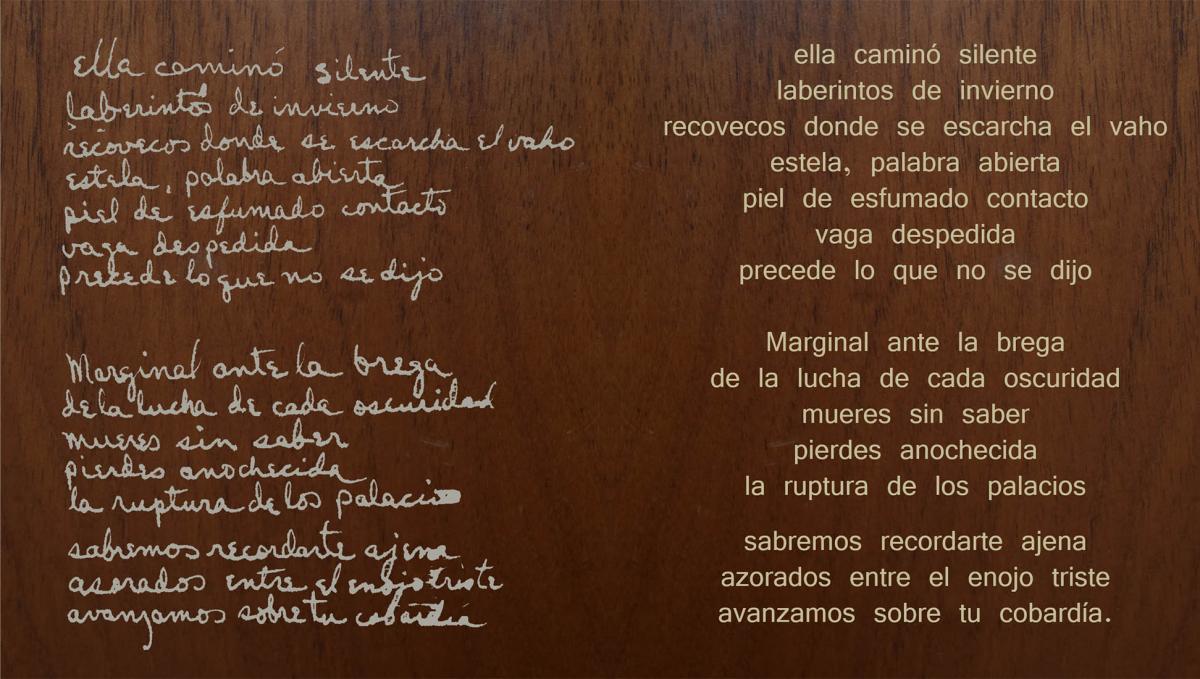 ella caminó silente
laberintos de invierno
recovecos donde se escarcha el vaho
estela, palabra abierta
piel de esfumado contacto
vaga despedida
precede lo que no se dijo
Marginal ante la brega
de la lucha de cada oscuridad
mueres sin saber
pierdes anochecida
la ruptura de los palacios
sabremos recordarte ajena
asorados entre el enojo triste
avanzamos sobre tu cobardía
ella caminó silente
laberintos de invierno
recovecos donde se escarcha el vaho
estela, palabra abierta
piel de esfumado contacto
vaga despedida
precede lo que no se dijo
Marginal ante la brega
de la lucha de cada oscuridad
mueres sin saber
pierdes anochecida
la ruptura de los palacios
sabremos recordarte ajena
azorados entre el enojo triste
avanzamos sobre tu cobardía.